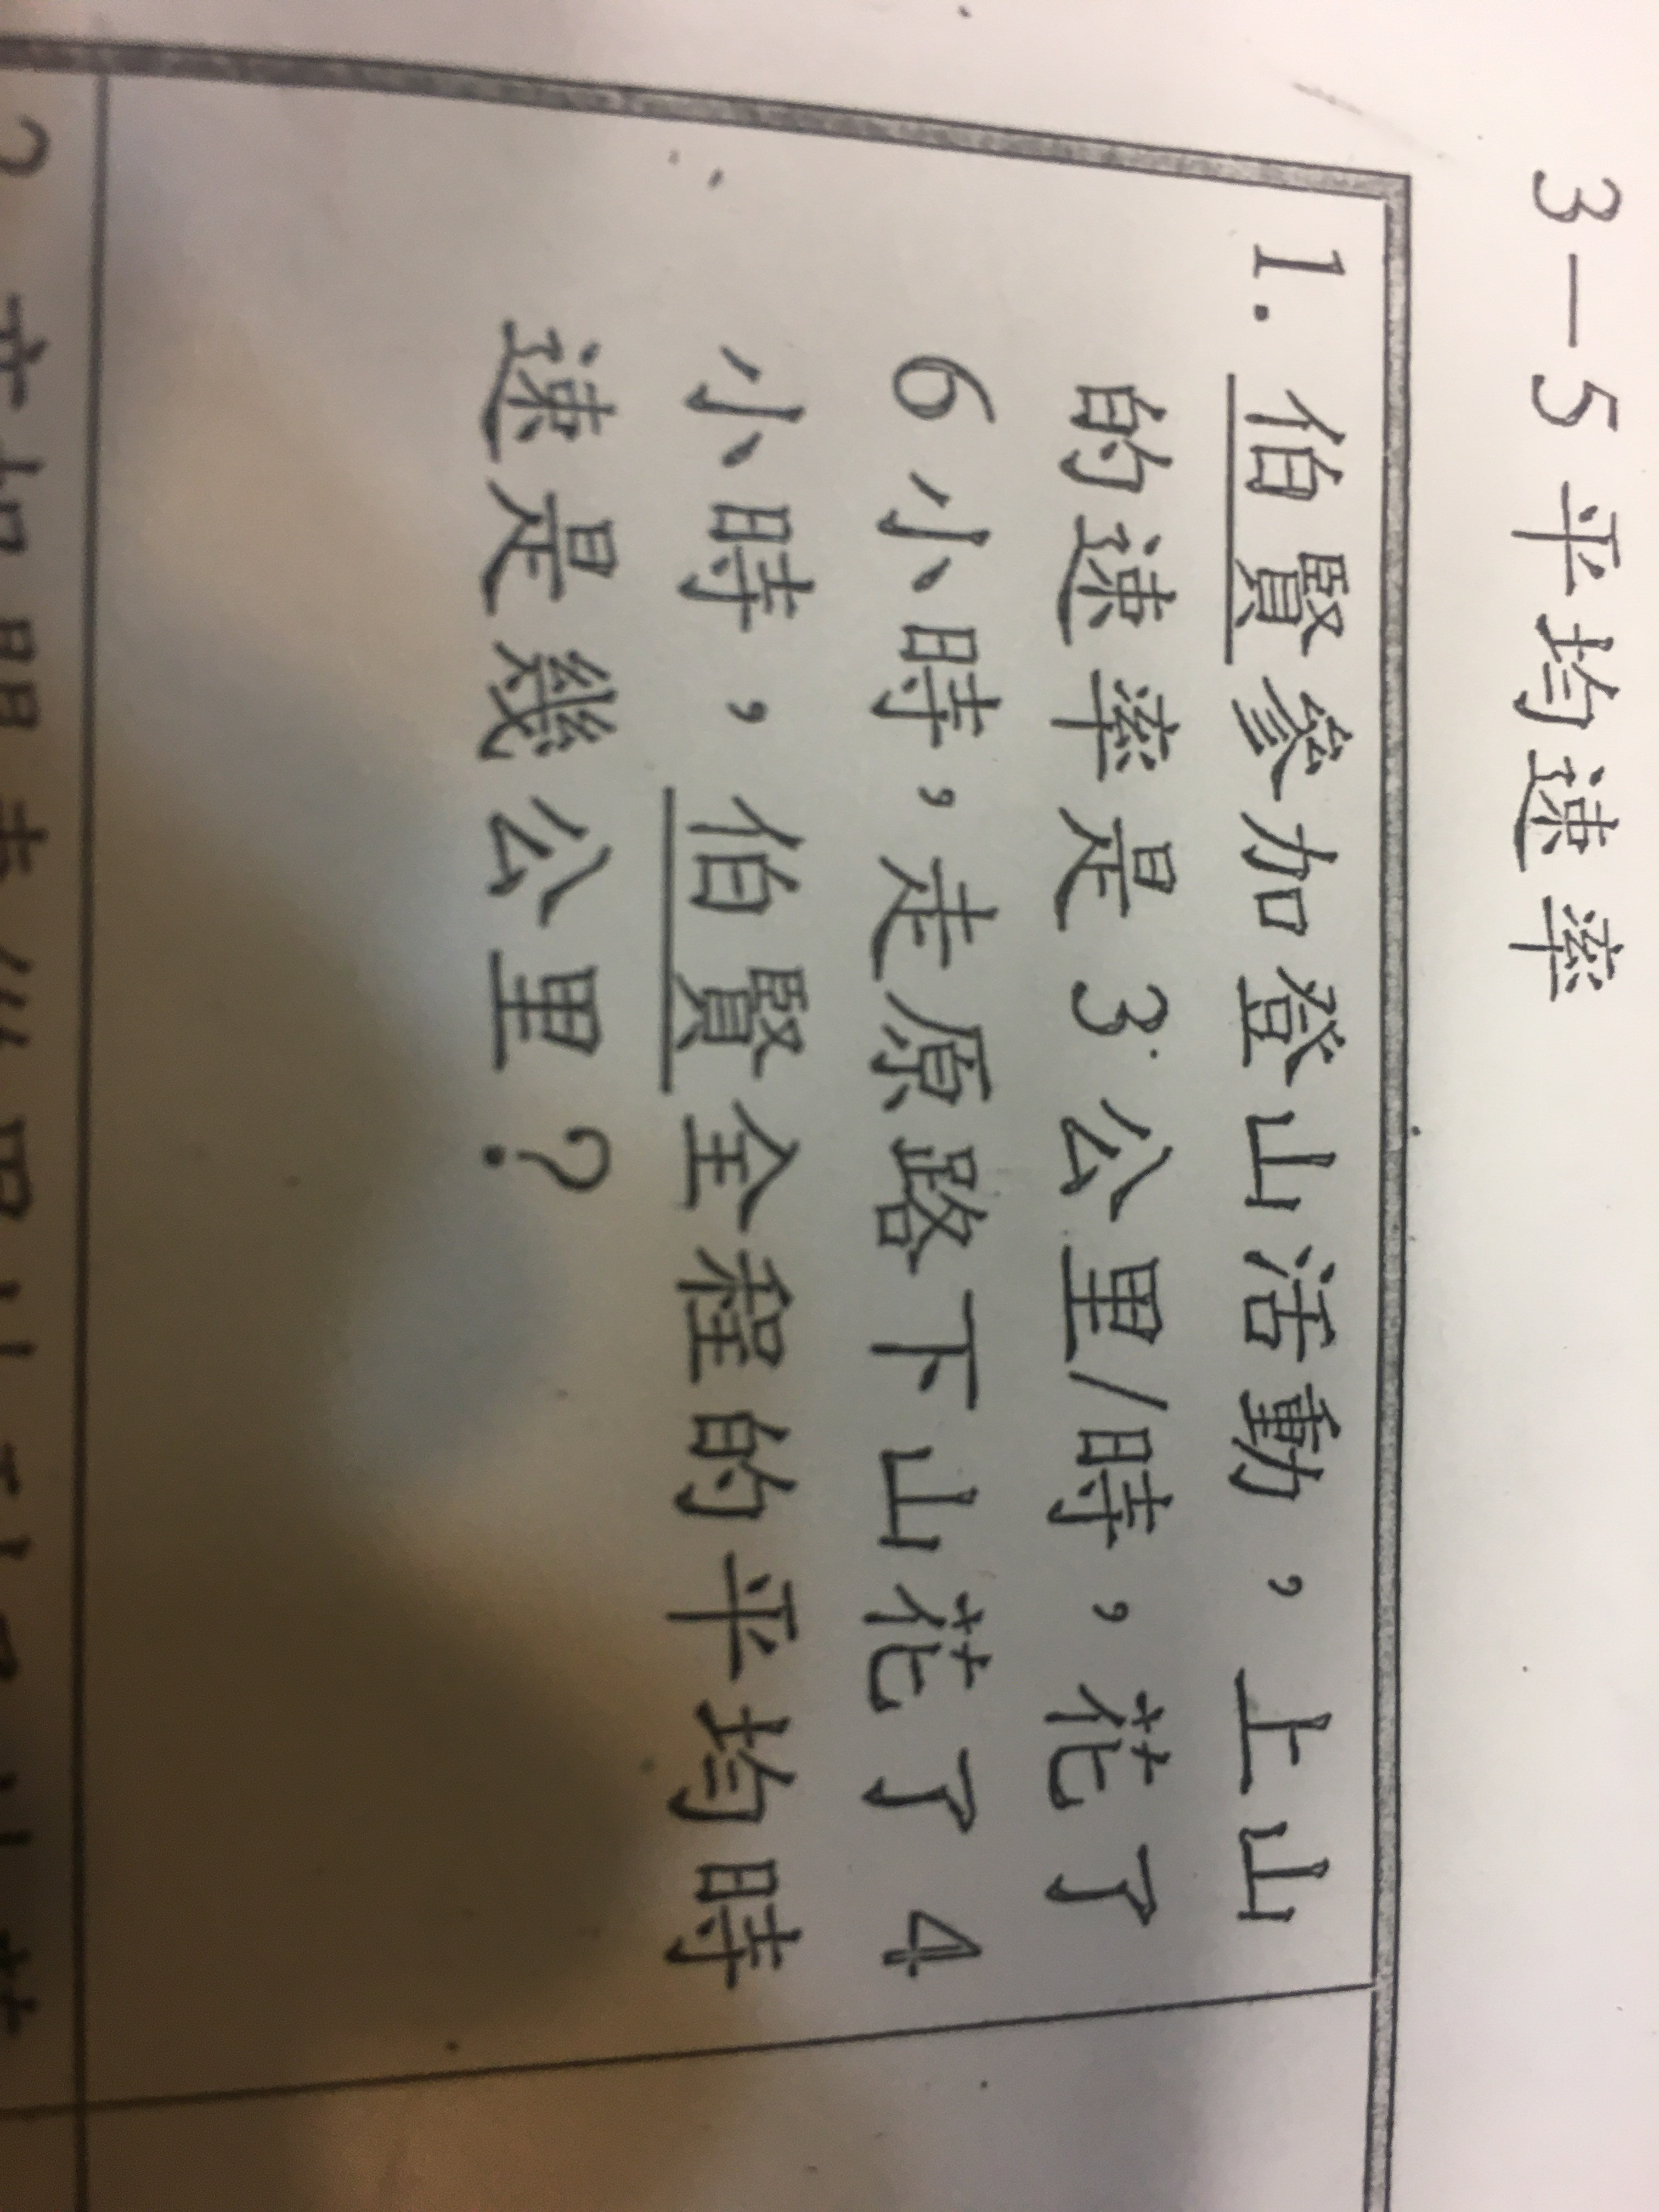 3－5平均速率
1. 伯賢參加登山活動，上山
的速率是3公里/時，花了
6小時，走原路下山花了4
小時，伯賢全程的平均時
速是幾公里？